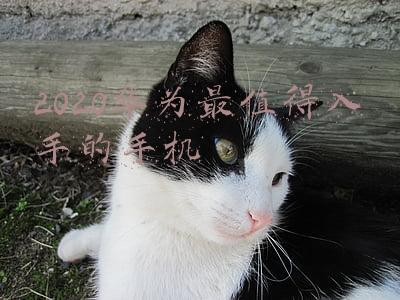 2020华为最值得入
手的手机